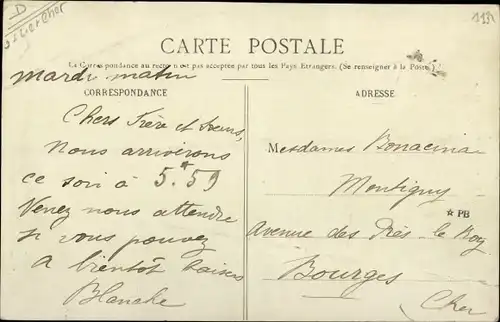 D
Loir et Cher
1131
CARTE POSTALE
La Correspondance au recto n'est pas acceptée par tous les Pays Etrangers. (Se renseigner à la Poste).
mardi matin
CORRESPONDANCE
ADRESSE
Chers Frère et Soeurs,
Nous arriverons
ce soir à 5.h 59
Venez nous attendre
si vous pouvez
A bientôt baisers
Blanche
Mesdames Bonacina
Montigny
PB
Avenue des Prés-le-Roy
Bourges
Cher